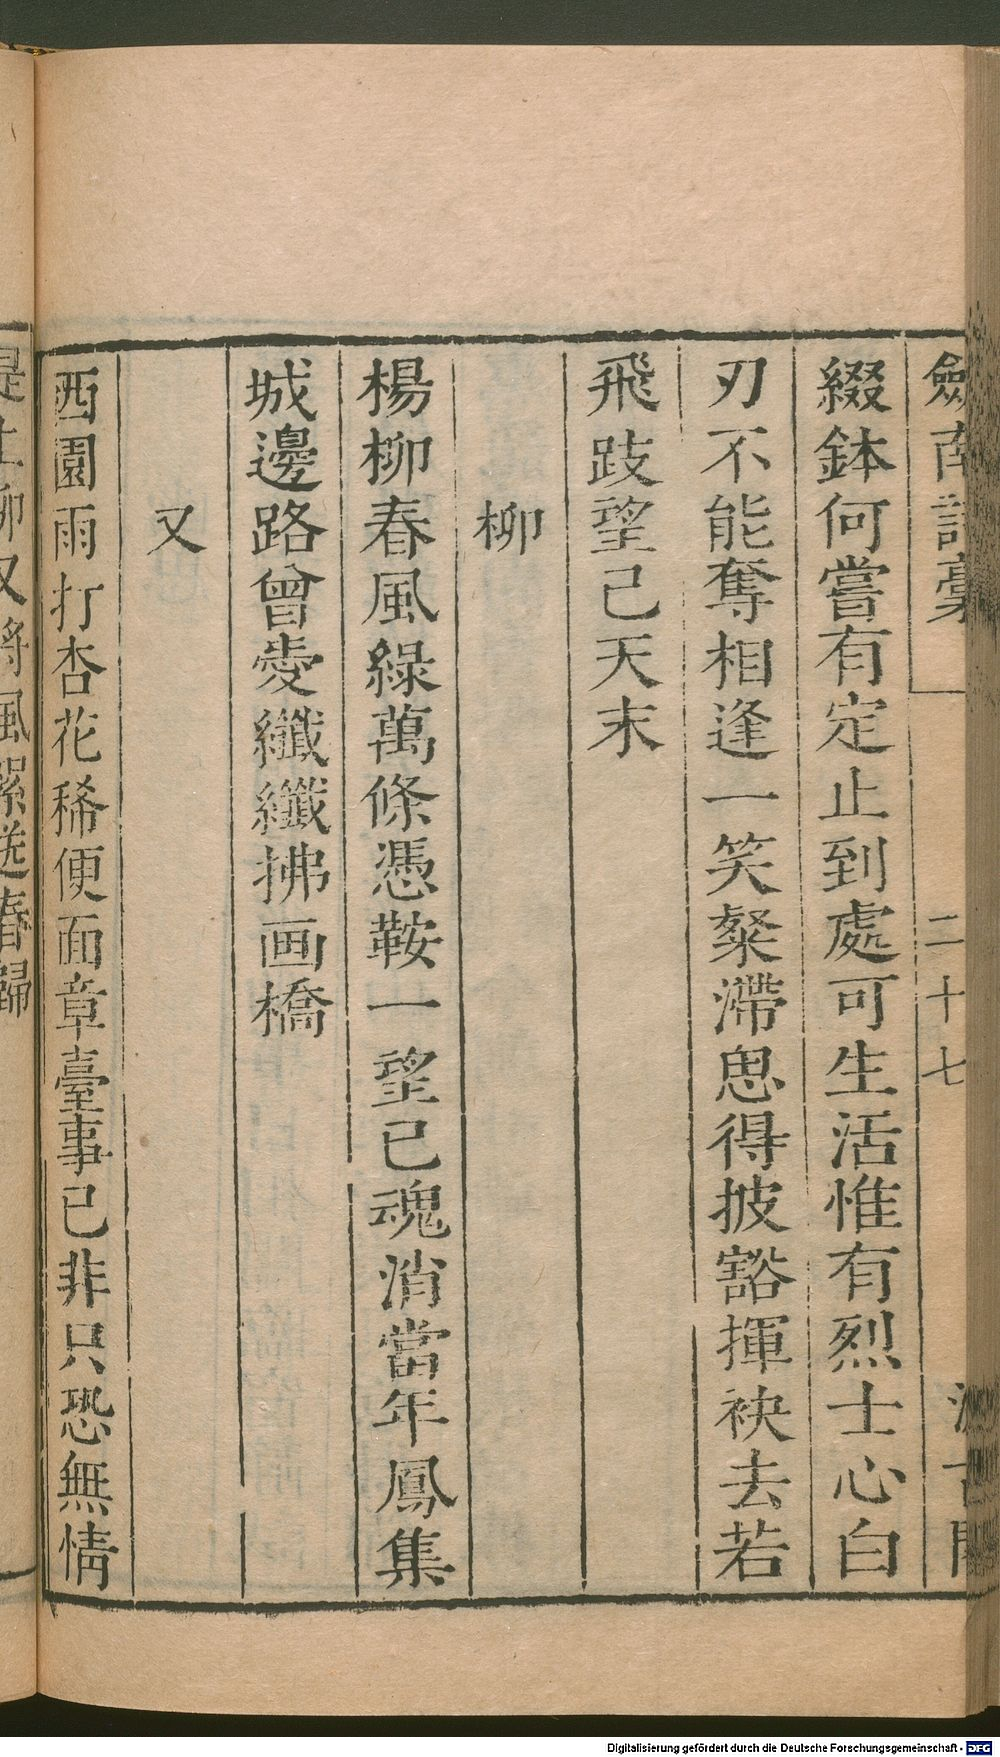 劒南詩稾
二十七
綴鉢何嘗有定止到處可生活惟有烈士心白
刃不能奪相逢一笑粲滯思得披豁揮袂去若
飛跂望已天末
柳
楊柳春風綠萬條憑鞍一望已魂消當年鳳集
城邊路曾愛纖纖拂画橋
又
西園雨打杏花稀便面章臺事已非只恐無情
堤上柳又將風絮送春歸
Digitalisierung gefördert durch die Deutsche Forschungsgemeinschaft - DFG